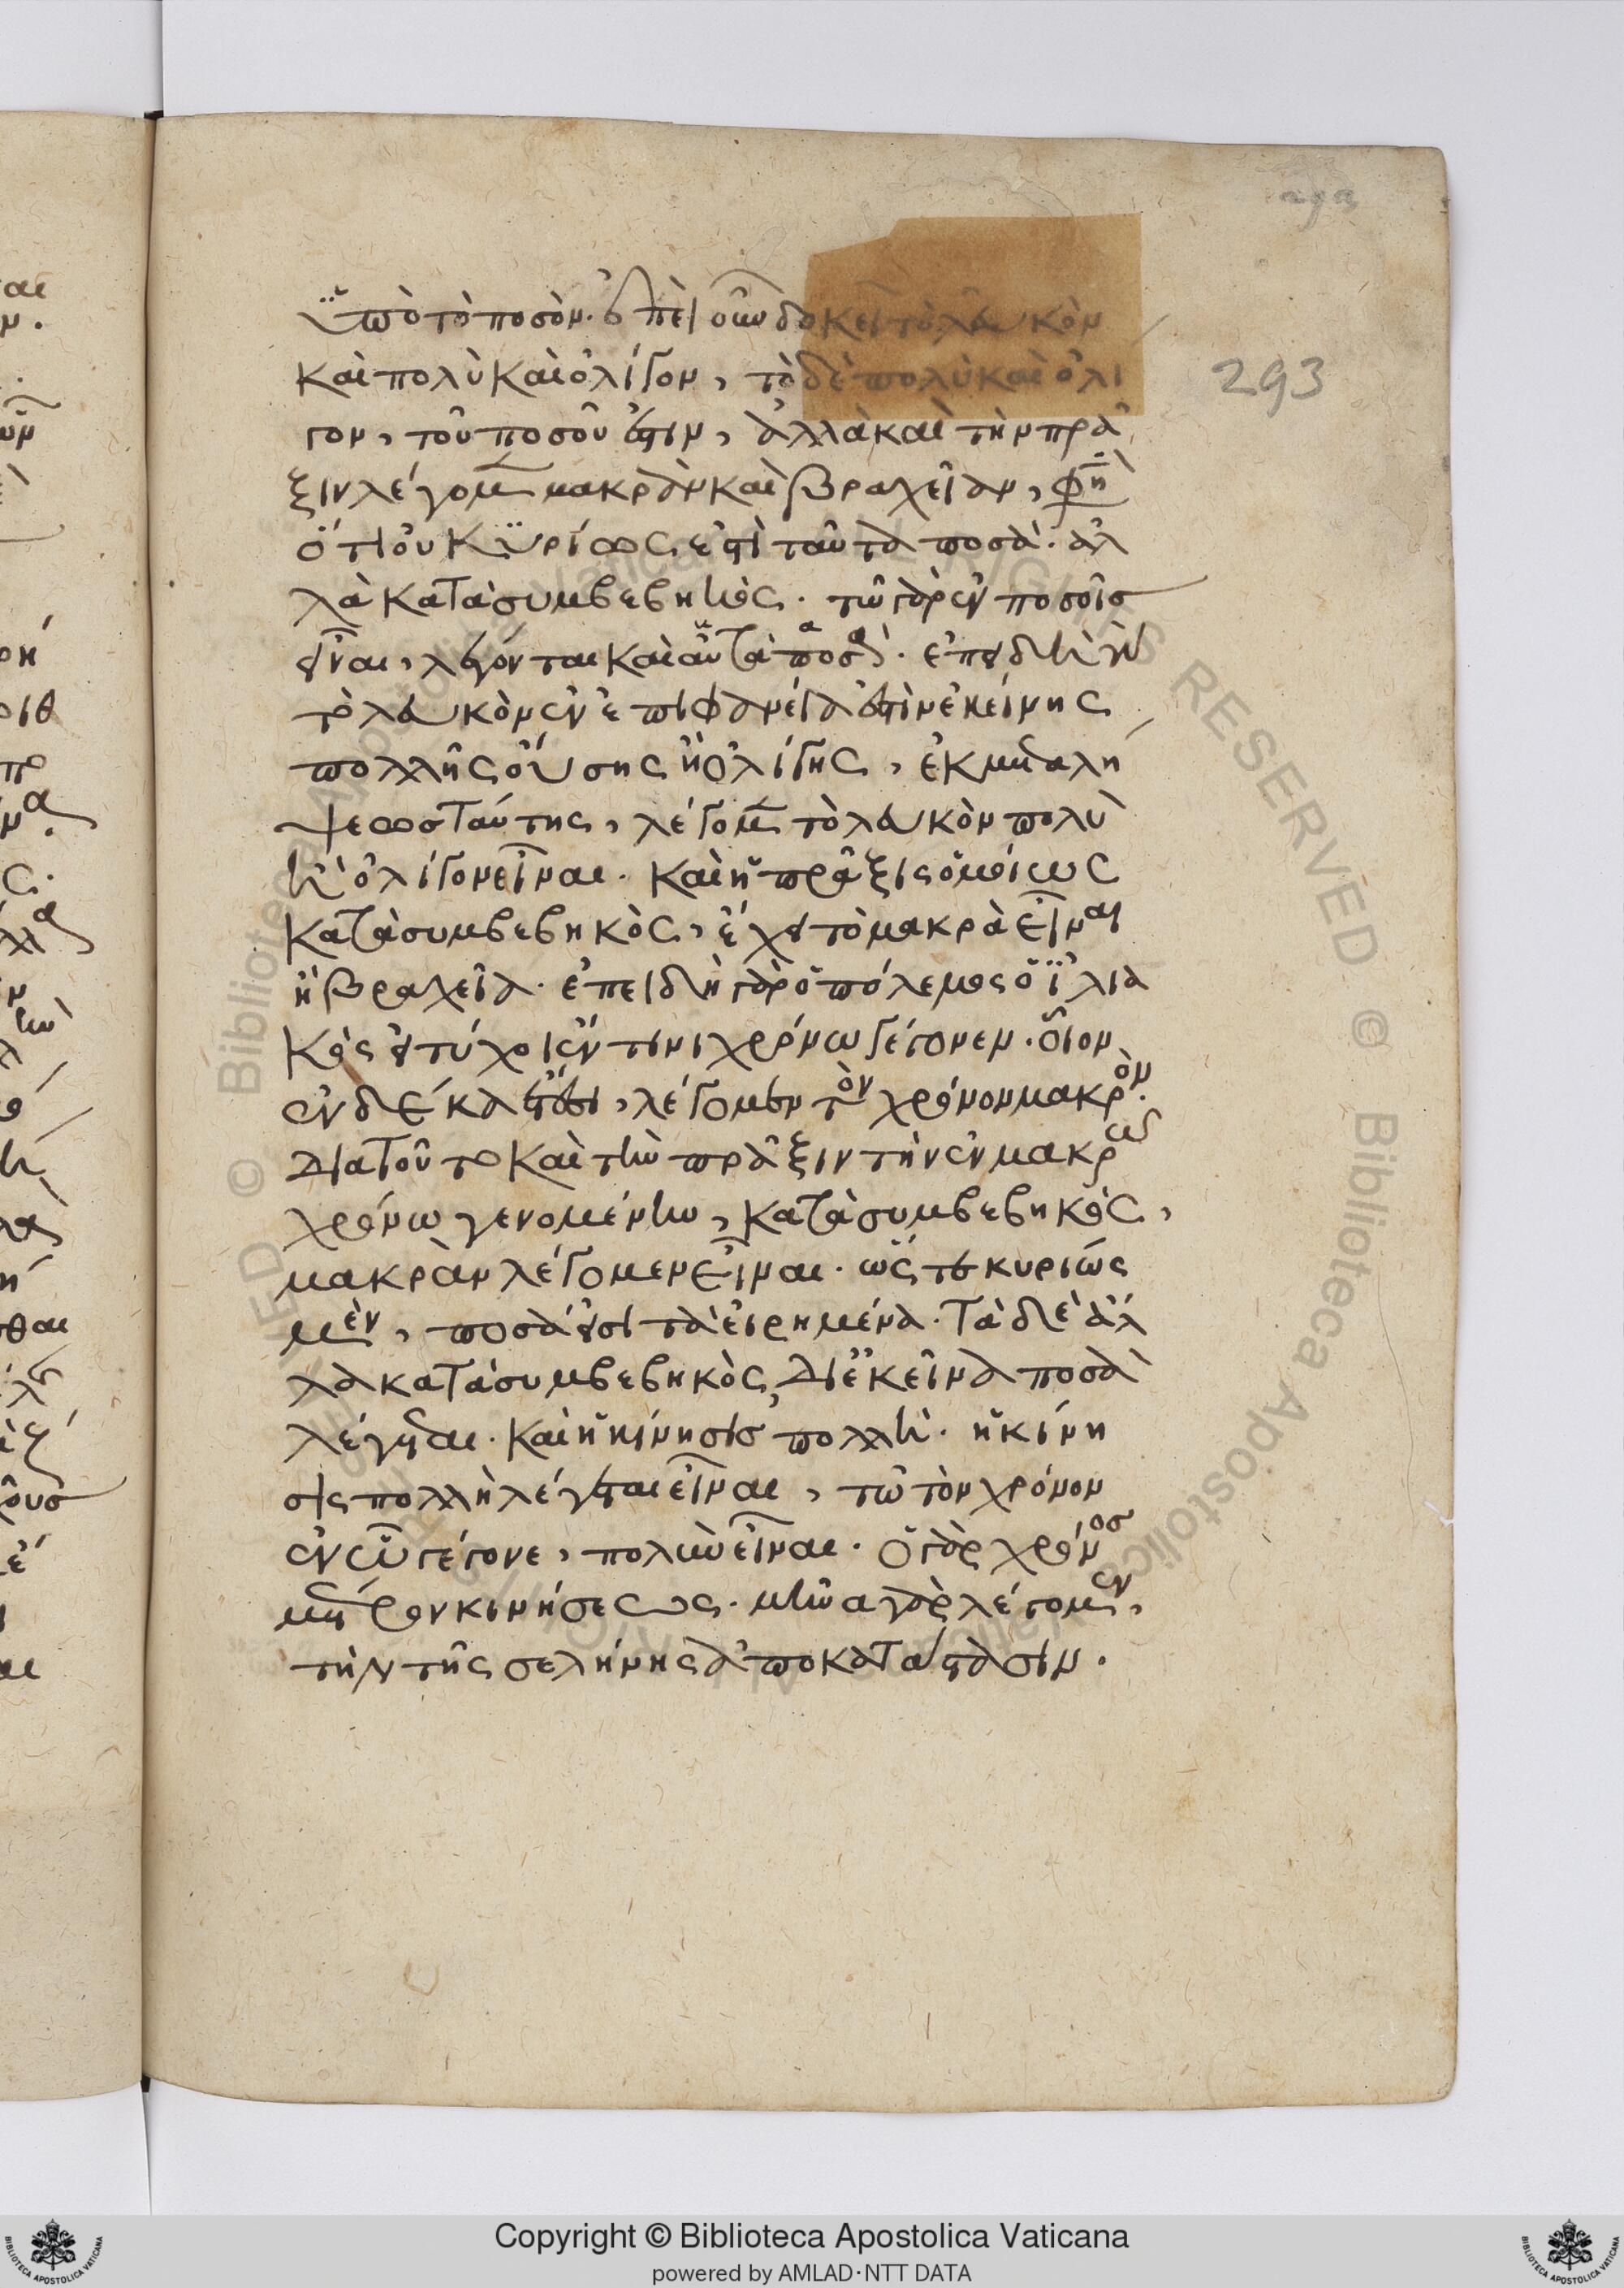 ὑπὸ τὸ ποσόν. ἐπεὶ οὖν δοκεῖ τὸ λευκὸν
καὶ πολὺ καὶ ὀλίγον, τὸ δὲ πολὺ καὶ ὀλί
γον, τοῦ ποσοῦ ἐστιν, ἀλλὰ καὶ τὴν πρᾶ
ξιν λέγομεν μακρὰν καὶ βραχεῖαν, φησὶν
ὅτι οὐ κυρίως ἐστὶ ταῦτα ποσά. ἀλ
λὰ κατὰ συμβεβηκός. τῶ γὰρ ἐν ποσοῖς
εἶναι, λέγονται καὶ αὐτὰ ποσά. ἐπειδὴ γὰρ
τὸ λευκὸν ἐν ἐπιφανεία ἐστὶν ἐκείνης
πολλῆς οὔσης ἢ ὀλίγης, ἐκ μεταλή
ψεως ταύτης, λέγομεν τὸ λευκὸν πολὺ
ἢ ὀλίγον εἶναι. καὶ ἡ πρᾶξις ὁμοίως
κατὰ συμβεβηκὸς, ἔχει τὸ μακρὰ εἶναι
ἢ βραχεῖα. ἐπειδὴ γὰρ ὁ πόλεμος ὁ ἰλια
κὸς εἰ τύχοι ἔν τινι χρόνω γέγονεν. οἷον
ἐν δέκα ἔτεσι, λέγομεν τὸν χρόνον μακρόν.
διὰ τοῦτο καὶ τὴν πρᾶξιν τὴν ἐν μακρῶ
χρόνω γενομένην, κατὰ συμβεβηκὸς,
μακρὰν λέγομεν εἶναι. ὥστε κυρίως
μὲν, ποσά εἰσι τὰ εἰρημένα. τὰ δὲ ἄλ
λα κατὰ συμβεβηκὸς, δι' ἐκεῖνα ποσὰ
λέγεται. καὶ ἡ κίνησις πολλή. ἡ κίνη
σις πολλὴ λέγεται εἶναι, τῶ τὸν χρόνον
ἐν ᾧ γέγονε, πολὺν εἶναι. ὁ γὰρ χρόνος
μέτρον κινήσεως. μῆνα γὰρ λέγομεν,
τὴν τῆς σελήνης ἀποκατάστασιν.
293
Copyright © Biblioteca Apostolica Vaticana
powered by AMLAD·NTT DATA